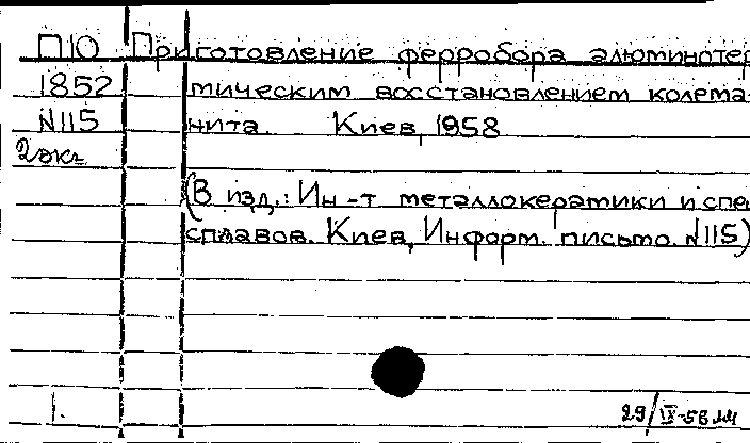 П10 Приготовление ферробора алюминотер
1852 мическим восстановлением колема-
N115 нита. Киев, 1958
2 экз
(В изд.: Ин-т металлокерамики и спец
сплавов. Киев, Информ. письмо. N115)
1.
29/IX-58